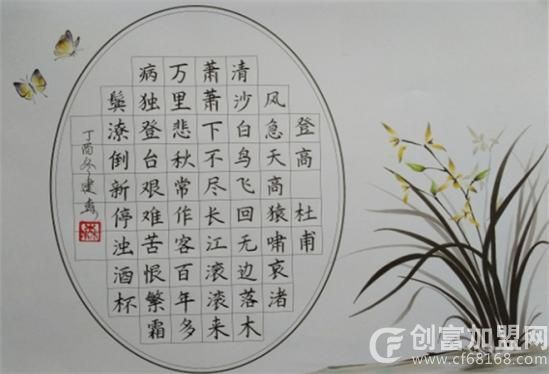 登高 杜甫
风急天高猿啸哀渚
清沙白鸟飞回无边落木
萧萧下不尽长江滚滚来
万里悲秋常作客百年多
病独登台艰难苦恨繁霜
鬓潦倒新停浊酒杯
丁酉冬建
创富加盟网
www.cf68168.com